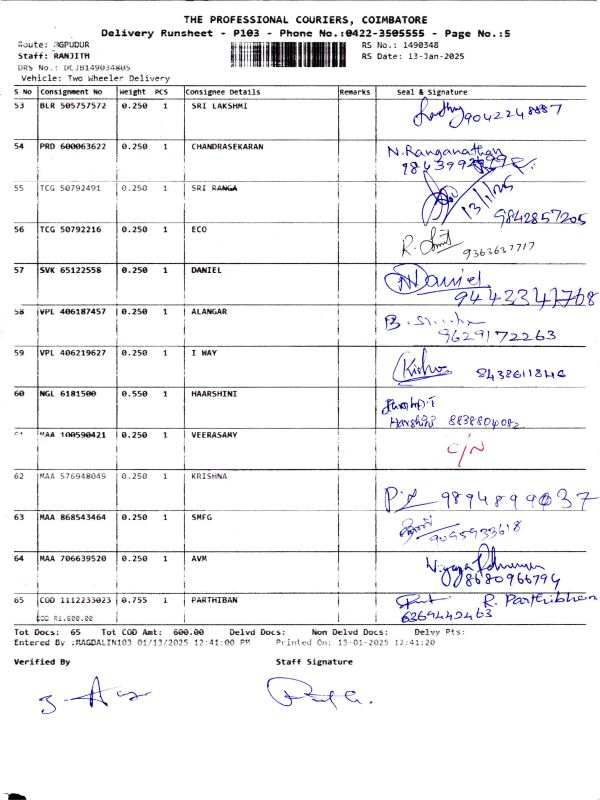 THE PROFESSIONAL COURIERS, COIMBATORE
Delivery Runsheet - P103 - Phone No.:0422-3505555 - Page No.:5
Route: RGPUDUR RS No.: 1490348
Staff: RANJITH RS Date: 13-Jan-2025
DRS No.: DCJB149034805
Vehicle: Two Wheeler Delivery
S No Consignment No Weight PCS Consignee Details Remarks Seal & Signature
53 BLR 505757572 0.250 1 SRI LAKSHMI 9042248887
54 PRD 600063622 0.250 1 CHANDRASEKARAN N. Ranganathan
55 TCG 50792491 0.250 1 SRI RANGA 13/1/25
9842857205
56 TCG 50792216 0.250 1 ECO 9363637717
57 SVK 65122558 0.250 1 DANIEL Daniel
58 VPL 406187457 0.250 1 ALANGAR
9629172263
59 VPL 406219627 0.250 1 I WAY Kishor
60 NGL 6181500 0.550 1 HAARSHINI
Harshini 8838804082
61 MAA 100590421 0.250 1 VEERASAMY C/N
62 MAA 576948049 0.250 1 KRISHNA
9894899037
63 MAA 868543464 0.250 1 SMFG
9095933618
64 MAA 706639520 0.250 1 AVM
8680966794
65 COD 1112233023 0.755 1 PARTHIBAN R. Parthiban
6369442463
COD Rs.600.00
Tot Docs: 65 Tot COD Amt: 600.00 Delvd Docs: Non Delvd Docs: Delvy Pts:
Entered By :MAGDALIN103 01/13/2025 12:41:00 PM Printed On: 13-01-2025 12:41:20
Verified By Staff Signature